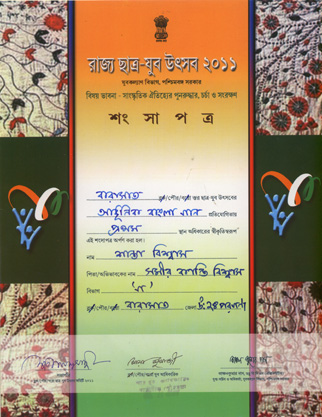 রাজ্য ছাত্র-যুব উৎসব ২০১১
যুবকল্যাণ বিভাগ, পশ্চিমবঙ্গ সরকার
বিষয় ভাবনা - সাংস্কৃতিক ঐতিহ্যের পুনরুদ্ধার, চর্চা ও সংরক্ষণ
শংসাপত্র
বারাসাত ব্লক/পৌর/ স্তর ছাত্র যুব উৎসবের
আধুনিক বাংলা গান প্রতিযোগিতায়
প্রথম স্থান অধিকারের স্বীকৃতিস্বরূপ
এই শংসাপত্র অর্পণ করা হল।
নাম বিশ্বাস
পিতা/অভিভাবকের নাম সমীর কান্তি বিশ্বাস
বিভাগ
ব্লক/পৌর/ বারাসাত জেলা উঃ ২৪ পরগণা